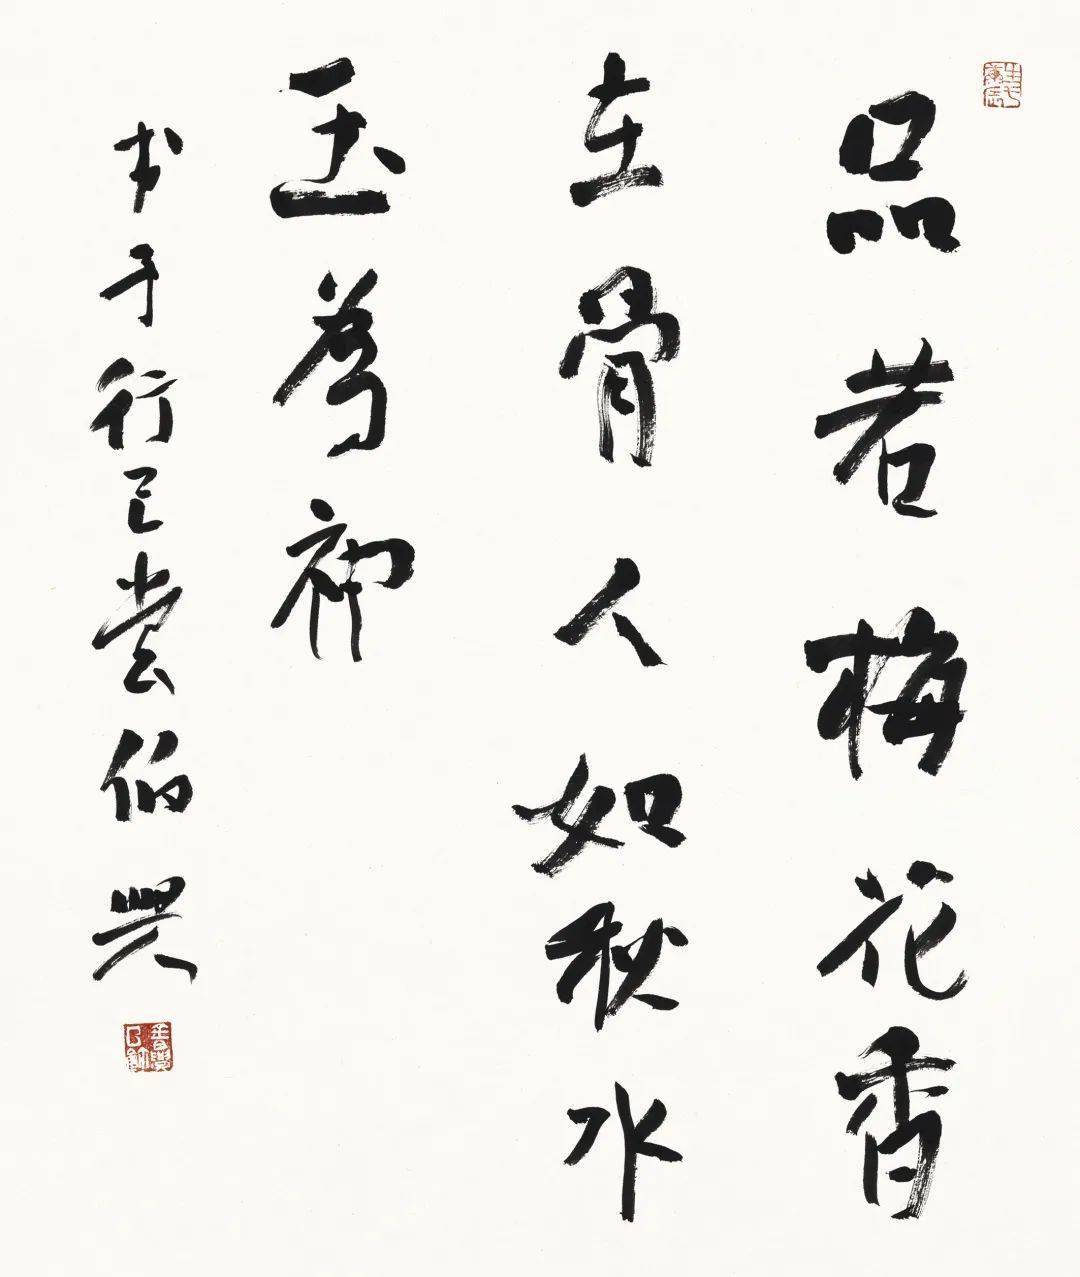 品若梅花香
在骨人如秋水
玉为神
书于行己堂伯兴